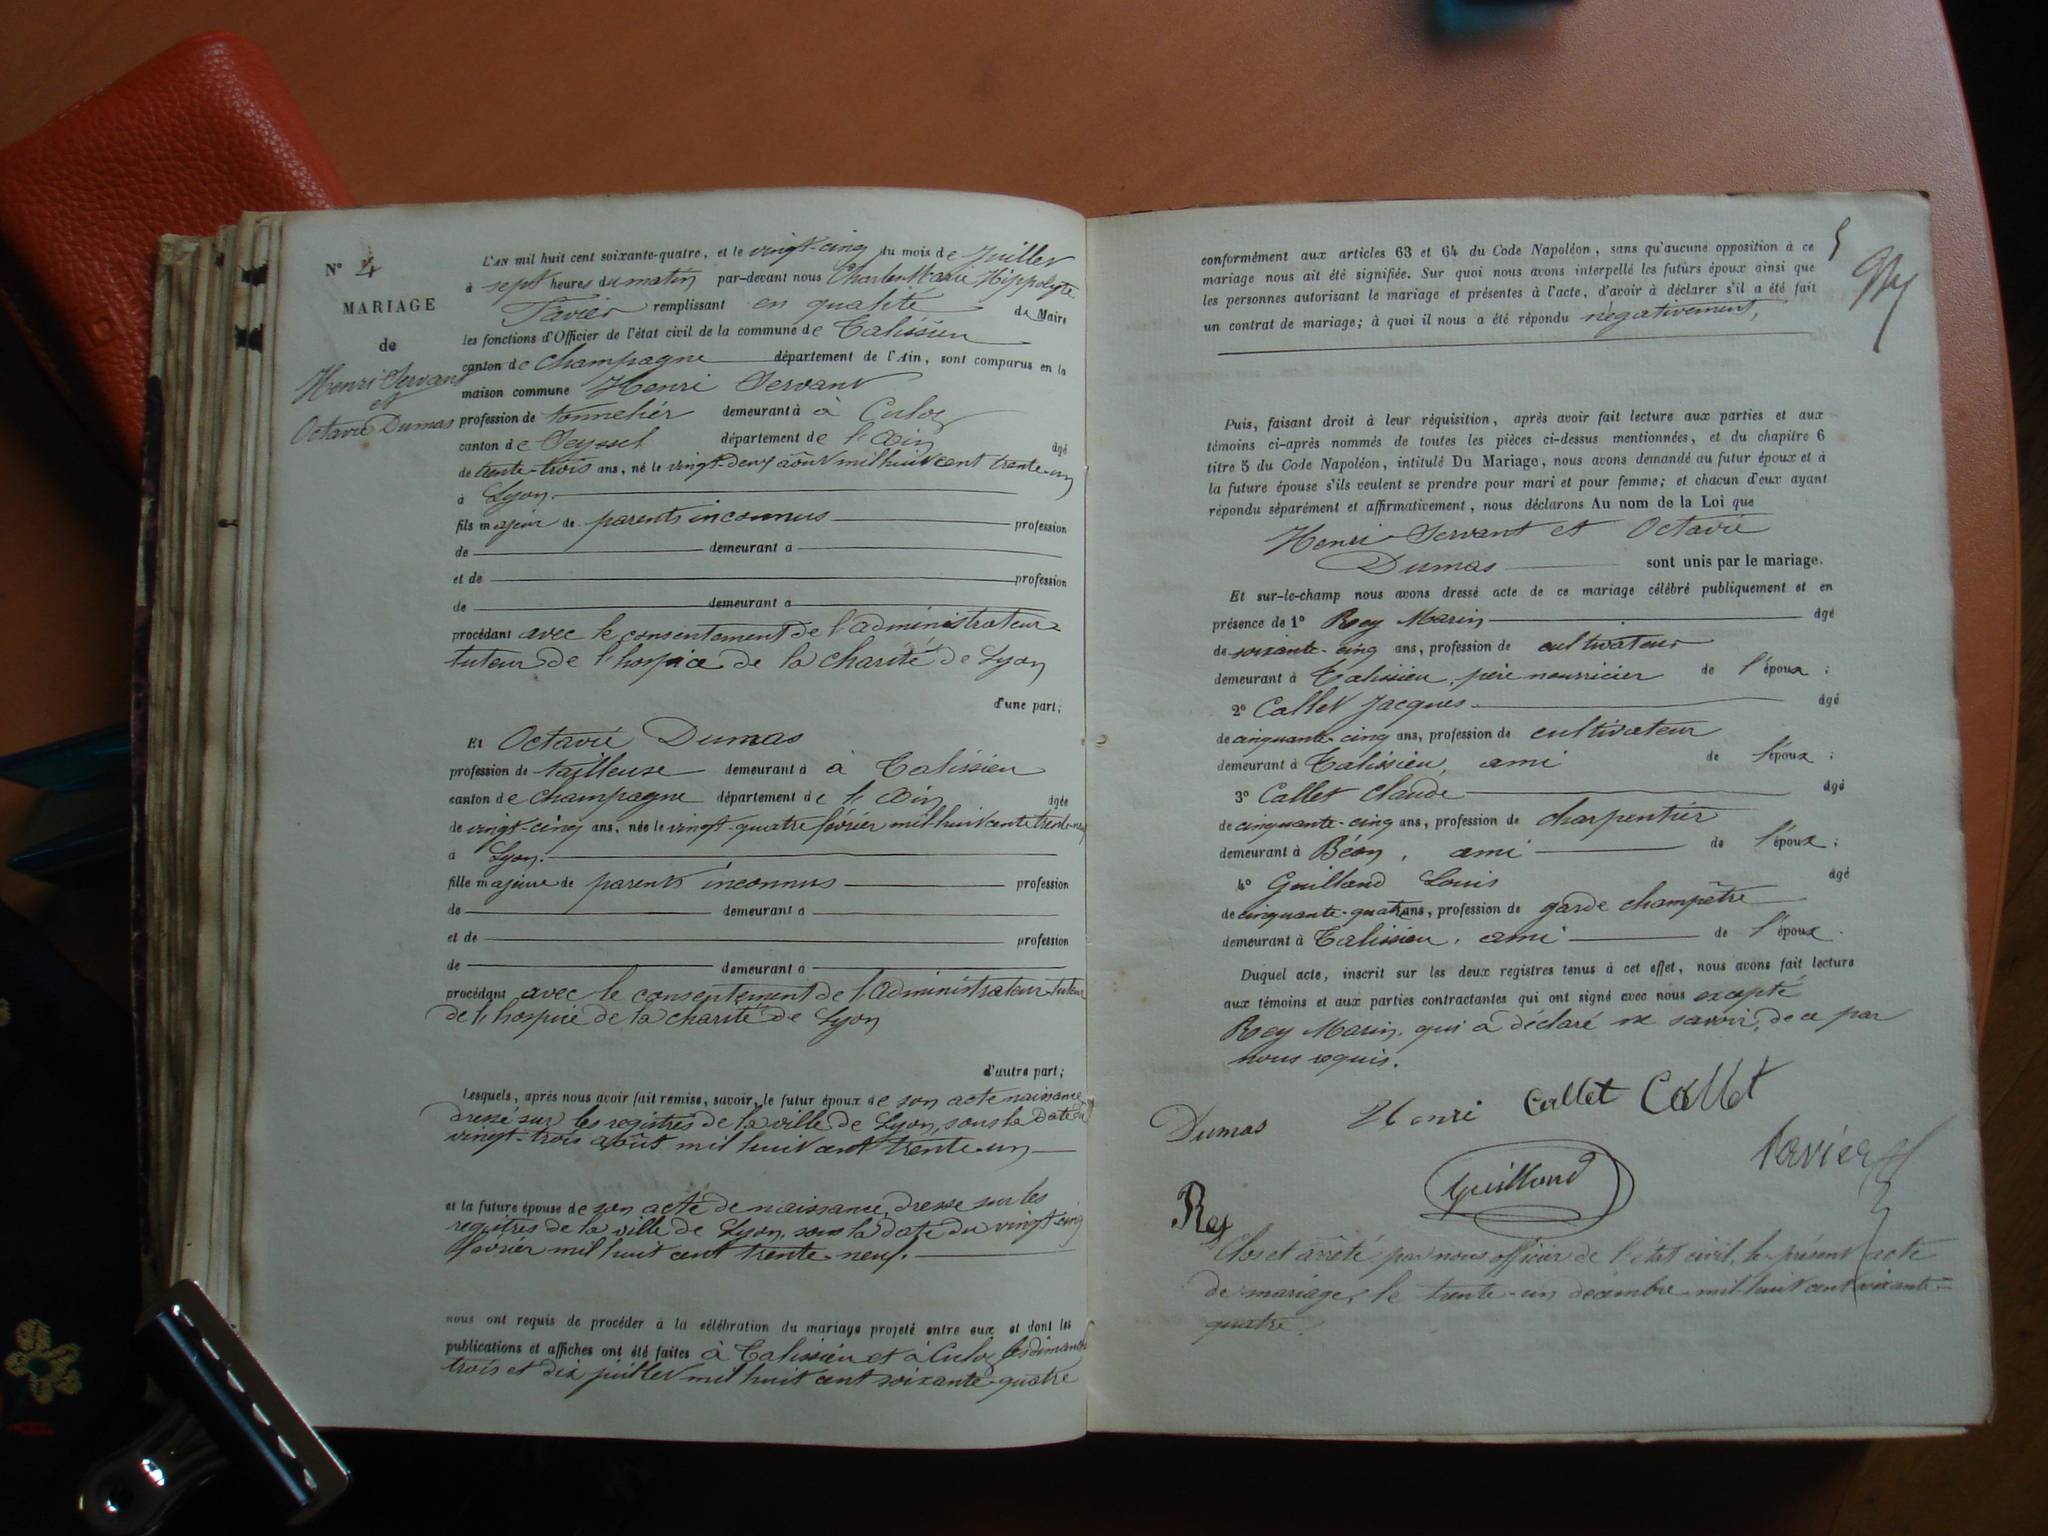 N° 4
MARIAGE
de
Henri Servant
et
Octavie Dumas
L'AN mil huit cent soixante-quatre, et le vingt-cinq du mois de Juillet
à sept heures du matin par-devant nous Charles Marie Hippolyte
Tavier remplissant en qualité de Maire
les fonctions d'Officier de l'état civil de la commune de Talissieu
canton de Champagne département de l'Ain, sont comparus en la
maison commune Henri Servant
profession de tonnelier demeurant à à Culoz
canton de Seyssel département de l'Ain âgé
de trente-trois ans, né le vingt-deux août mil huit cent trente-un
à Lyon.
fils majeur de parents inconnus profession
de demeurant à
et de profession
de demeurant à
procédant avec le consentement de l'administrateur
tuteur de l'hospice de la charité de Lyon
d'une part;
Et Octavie Dumas
profession de tailleuse demeurant à à Talissieu
canton de Champagne département de l'Ain âgée
de vingt-cinq ans, née le vingt-quatre février mil huit cent trente-neuf
à Lyon.
fille majeure de parents inconnus profession
de demeurant à
et de profession
de demeurant à
procédant avec le consentement de l'administrateur tuteur
de l'hospice de la charité de Lyon
d'autre part;
Lesquels, après nous avoir fait remise, savoir, le futur époux de son acte naissance
dressé sur les registres de la ville de Lyon, sous la date du
vingt-trois août mil huit cent trente-un
et la future épouse de son acte de naissance, dressé sur les
registres de la ville de Lyon, sous la date du vingt-cinq
février mil huit cent trente-neuf.
nous ont requis de procéder à la célébration du mariage projeté entre eux et dont les
publications et affiches ont été faites à Talissieu et à Culoz les dimanches
trois et dix juillet mil huit cent soixante-quatre
5
conformément aux articles 63 et 64 du Code Napoléon, sans qu'aucune opposition à ce
mariage nous ait été signifiée. Sur quoi nous avons interpellé les futurs époux ainsi que
les personnes autorisant le mariage et présentes à l'acte, d'avoir à déclarer s'il a été fait
un contrat de mariage; à quoi il nous a été répondu négativement,
Puis, faisant droit à leur réquisition, après avoir fait lecture aux parties et aux
témoins ci-après nommés de toutes les pièces ci-dessus mentionnées, et du chapitre 6
titre 5 du Code Napoléon, intitulé Du Mariage, nous avons demandé au futur époux et à
la future épouse s'ils veulent se prendre pour mari et pour femme; et chacun d'eux ayant
répondu séparément et affirmativement, nous déclarons Au nom de la Loi que
Henri Servant et Octavie
Dumas sont unis par le mariage.
Et sur-le-champ nous avons dressé acte de ce mariage célébré publiquement et en
présence de 1° Rey Marin âgé
de soixante-cinq ans, profession de cultivateur
demeurant à Talissieu, père nourricier de l'époux;
2° Callet Jacques âgé
de cinquante-cinq ans, profession de cultivateur
demeurant à Talissieu, ami de l'époux;
3° Callet Claude âgé
de cinquante-cinq ans, profession de charpentier
demeurant à Béon, ami de l'époux;
4° Guilland Louis âgé
de cinquante-quatre ans, profession de garde champêtre
demeurant à Talissieu, ami de l'époux.
Duquel acte, inscrit sur les deux registres tenus à cet effet, nous avons fait lecture
aux témoins et aux parties contractantes qui ont signé avec nous excepté
Rey Marin, qui a déclaré ne savoir, de ce par
nous requis.
Dumas Henri Callet Callet
Guilland Tavier
Rey
Clos et arrêté par nous officier de l'état civil, le présent acte
de mariage, le trente-un décembre mil huit cent soixante-
quatre.